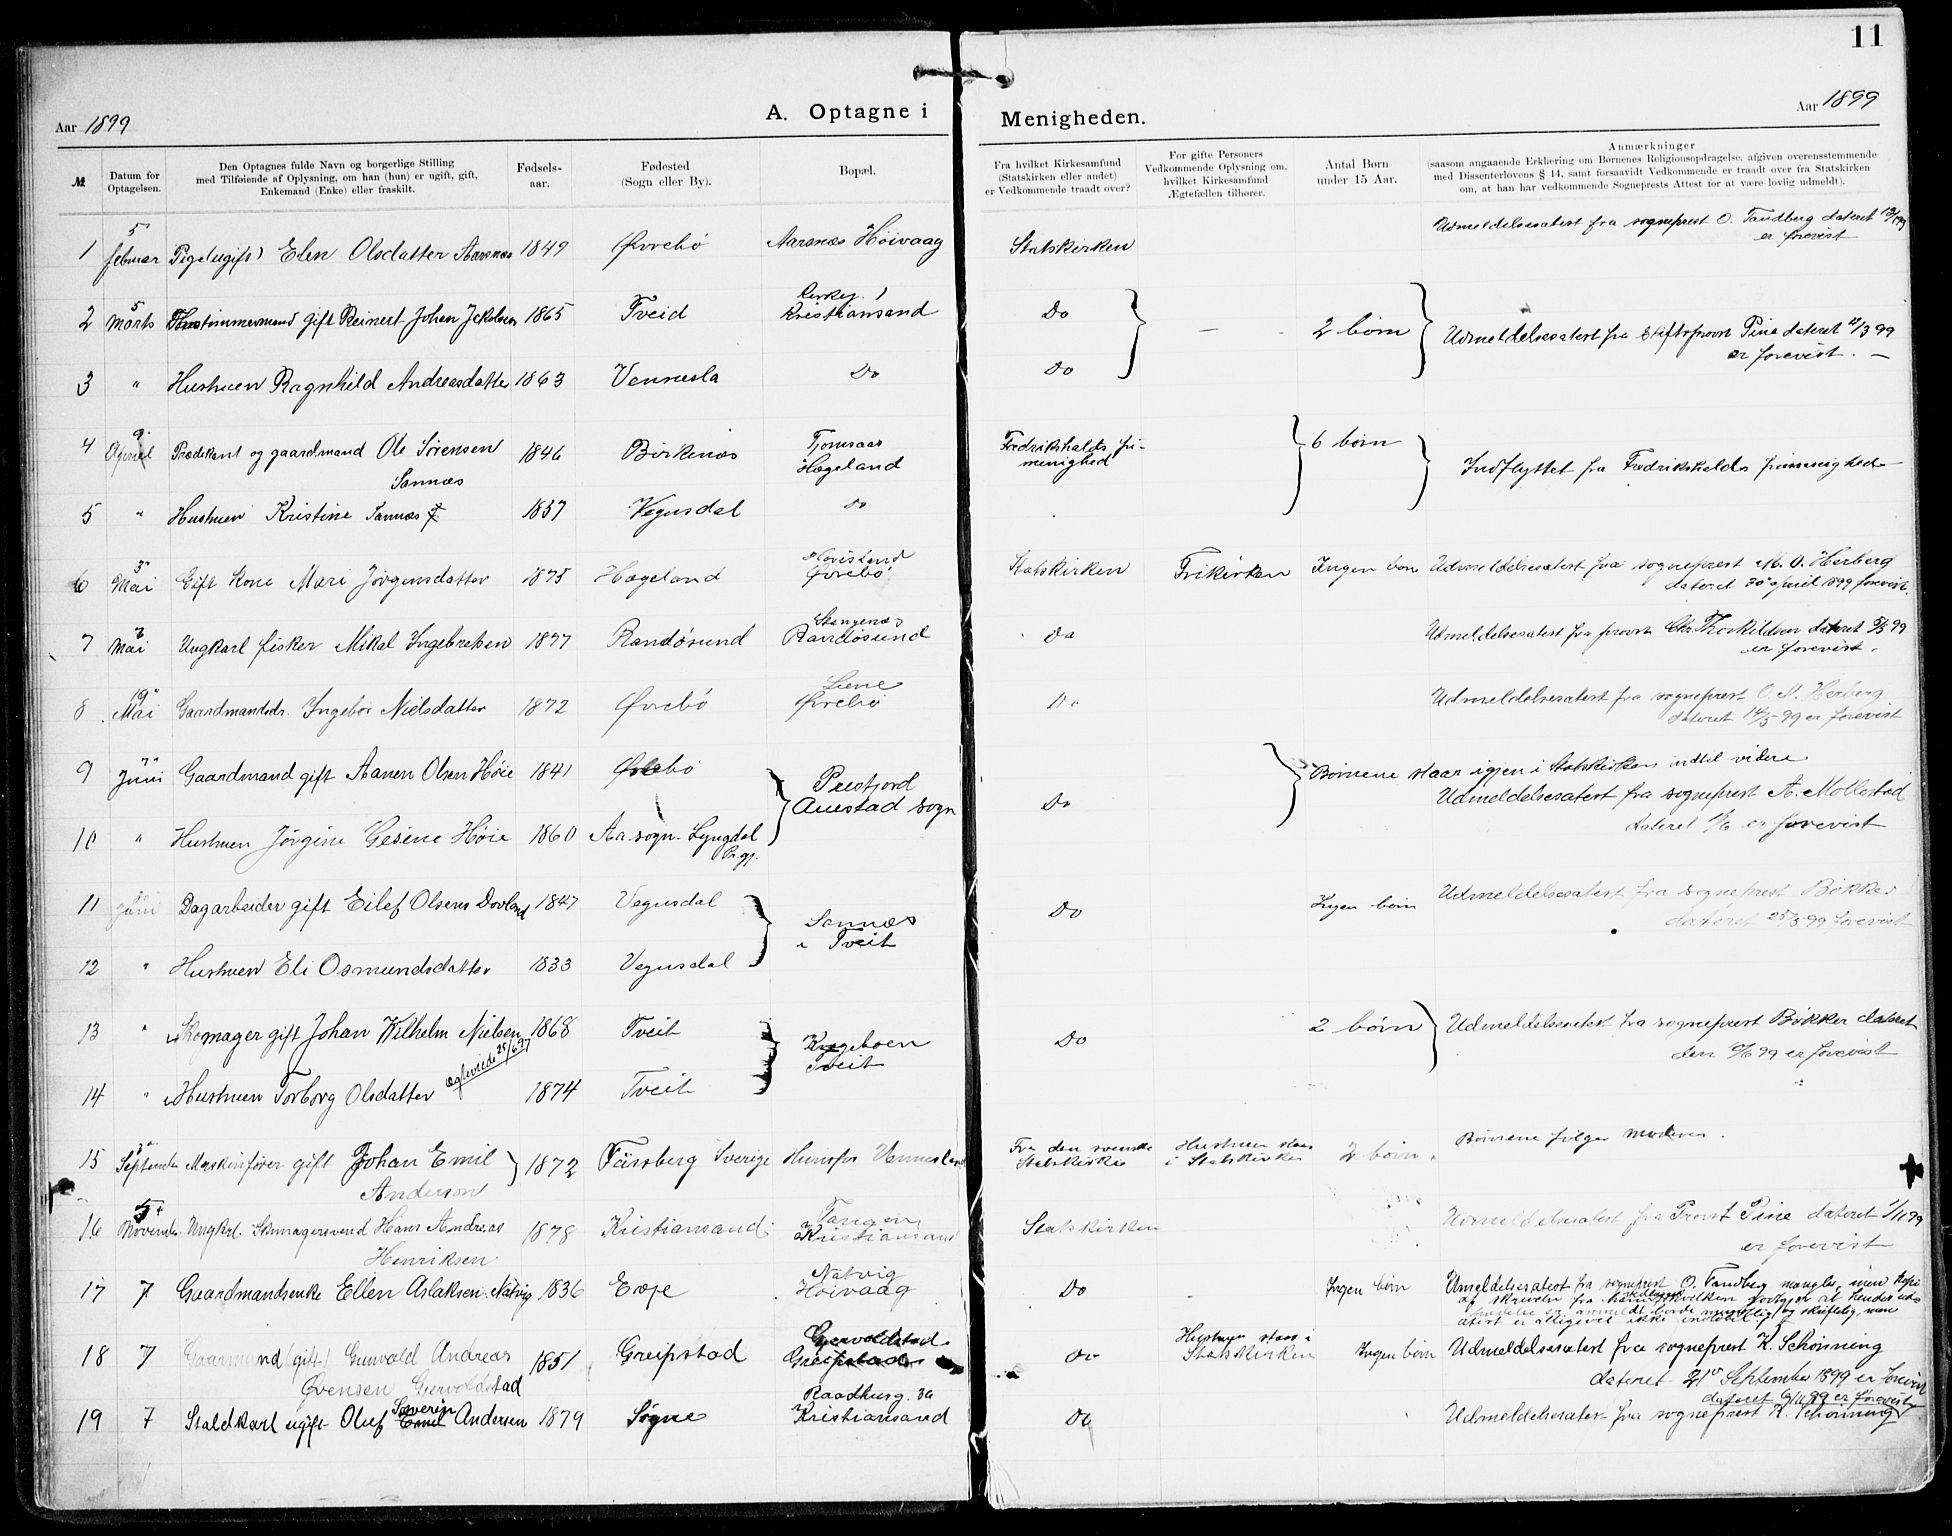 11
Aar 1899
A. Optagne i Menigheden.
Aar 1899
№
Datum for Optagelsen.
Den Optagnes fulde Navn og borgerlige Stilling
med Tilføiende af Oplysning, om han (hun) er ugift, gift,
Enkemand (Enke) eller fraskilt.
Fødsels-
aar.
Fødested
(Sogn eller By).
Bopæl.
Fra hvilket Kirkesamfund
(Statskirken eller andet)
er Vedkommende traadt over?
For gifte Personers
Vedkommende Oplysning om,
hvilket Kirkesamfund
Ægtefællen tilhører.
Antal Børn
under 15 Aar.
Anmærkninger
(saasom angaaende Erklæring om Børnenes Religionsopdragelse, afgiven overensstemmende
med Dissenterlovens § 14, samt forsaavidt Vedkommende er traadt over fra Statskirken
om, at han har vedkommende Sogneprests Attest for at være lovlig udmeldt).
1 5 februar Pige (ugift) Elen Olsdatter Aarsnes 1849 Øvrebó Aarsnæs Höivaag Statskirken Udmeldelsesatest fra sogneprest O. Tandberg dateret
er forevist
2 5 Marts gift Reinert Johan 1865 Tveid Kristiansand Do 2 börn Udmeldelsesatest fra Stiftsprovst Pine dateret /3 99
er forevist. —
3 " Hustruen Ragnhild Andreasdatter 1863 Vennesla Do Do
4 9 Prædikant og gaardmand Ole Sörensen 1846 Birkenæs Tjomsaas Fredrikshalds fri- 6 börn
Sannæs Hægeland menighed Indflyttet fra Fredrikshalds frimenighed
5 " Hustruen Kristine Sannæs 1857 Vegusdal do
6 3 Mai Gift Kone Mari Jörgensdatter 1875 Hægeland Øvrebö Statskirken Frikirken Ingen börn Udmeldelsesatest fra sogneprest O. Herberg
dateret april 1899 forevist.
7 7 Mai Ungkarl fisker Mikal Ingebretsen 1877 Randösund Stangenæs Randösund Do Udmeldelsesatest fra provst Chr. Thorkildsen dateret
er forevist.
8 19 Mai Gaardmandsdr. Ingebor Nielsdatter 1872 Øvrebó Øvrebö Do Udmeldelsesatest fra sogneprest Herberg
dateret 14/5-99 er forevist
9 7 Juni Gaardmand gift Aanen Olsen Höie 1841 Øvrebö Prestjord Börnene staar igjen i Statskirken indtil videre
Auestad sogn Do Udmeldelsesatest fra sogneprest A. Mollestad
dateret er forevist
10 " Hustruen Jörgine Gesine Höie 1860 Aa sogn Lyngdal
Pr.gj.
11 Juni Dagarbeider gift Eilef Olsen Dovland 1847 Vegusdal Sannæs Do Ingen börn Udmeldelsesatest fra sogneprest Bökker
i Tveit dateret 25/5-99 forevist
12 " Hustruen Eli Osmundsdatter 1833 Vegusdal
13 " Skomager gift Johan Wilhelm Nielsen 1868 Tveit Do 2 börn Udmeldelsesatest fra sogneprest Bökker dateret
Tveit den 99 er forevist
14 " Hustruen Torborg Olsdatter 1874 Tveit
15 3 September Maskinförer gift Johan Emil 1872 Sverige Hunsfos Vennesland Fra den svenske Hustruen staar 2 börn. Börnene fölger moderen.
Anderson Statskirke i Statskirken
16 5 November Ungkrl. Skomagersvend Hans Andreas 1878 Kristiansand Tangen Statskirken Udmeldelsesatest fra Provst Pine dateret 1/11 99
Henriksen Kristiansand er forevist
17 7 Gaardmandsenke Ellen Aslaksen Natvig 1836 Evje Natvig Höivaag Do Ingen börn Udmeldelsesatest fra sogneprest O. Tandberg mangler, men
18 7 Gaarmand (gift) Gunvald Andreas 1851 Greipstad Hustruen staar i Statskirken Ingen börn Udmeldelsesatest fra sogneprest K. Schönning
Övensen Gervoldstad dateret 21 September 1899 er forevist
dateret 99 er forevist
19 7 Staldkarl ugift Oluf Severin Andersen 1879 Sögne Raadhusg. 3a Kristiansand Do Udmeldelsesatest fra sogneprest K. Schönning